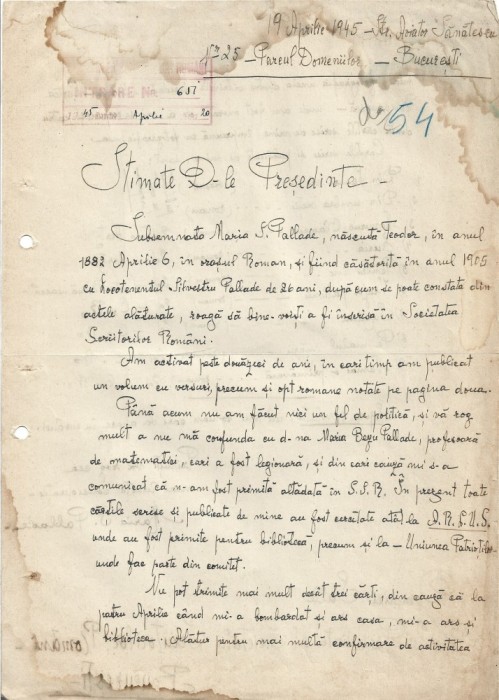 19 Aprilie 1945 - Str. Aviator Sănătescu
Nr 25 - Parcul Domeniilor - București
651
45 Aprilie 20
54
Stimate D-le Președinte -
Subsemnata Maria S. Pallade, născută Teodor, în anul
1882 Aprilie 6, în orașul Roman, și fiind căsătorită în anul 1905
cu Locotenentul Silvestru Pallade de 26 ani, după cum se poate constata din
actele alăturate, roagă să bine-voiști a fi înscrisă în Societatea
Scriitorilor Români.
Am activat peste douăzeci de ani, în cari timp am publicat
un volum cu versuri, precum și opt romane notate pe pagina doua.
Până acum nu am făcut nici un fel de politică, și vă rog
mult a nu mă confunda cu d-na Maria S. Beju Pallade, profesoară
de matematici, cari a fost legionară, și din cari cauză mi s-a
comunicat că n-am fost primită altădată în S.S.R. În prezent toate
cărțile scrise și publicate de mine au fost cercetate atât la A.R.L.U.S,
unde au fost primite pentru bibliotecă, precum și la - Uniunea Patrioților
unde fac parte din comitet.
Nu pot trimite mai mult decât trei cărți, din cauză că la
patru Aprilie când mi-a bombardat și ars casa, mi-a ars și
biblioteca. Alătur pentru mai multă confirmare de activitatea